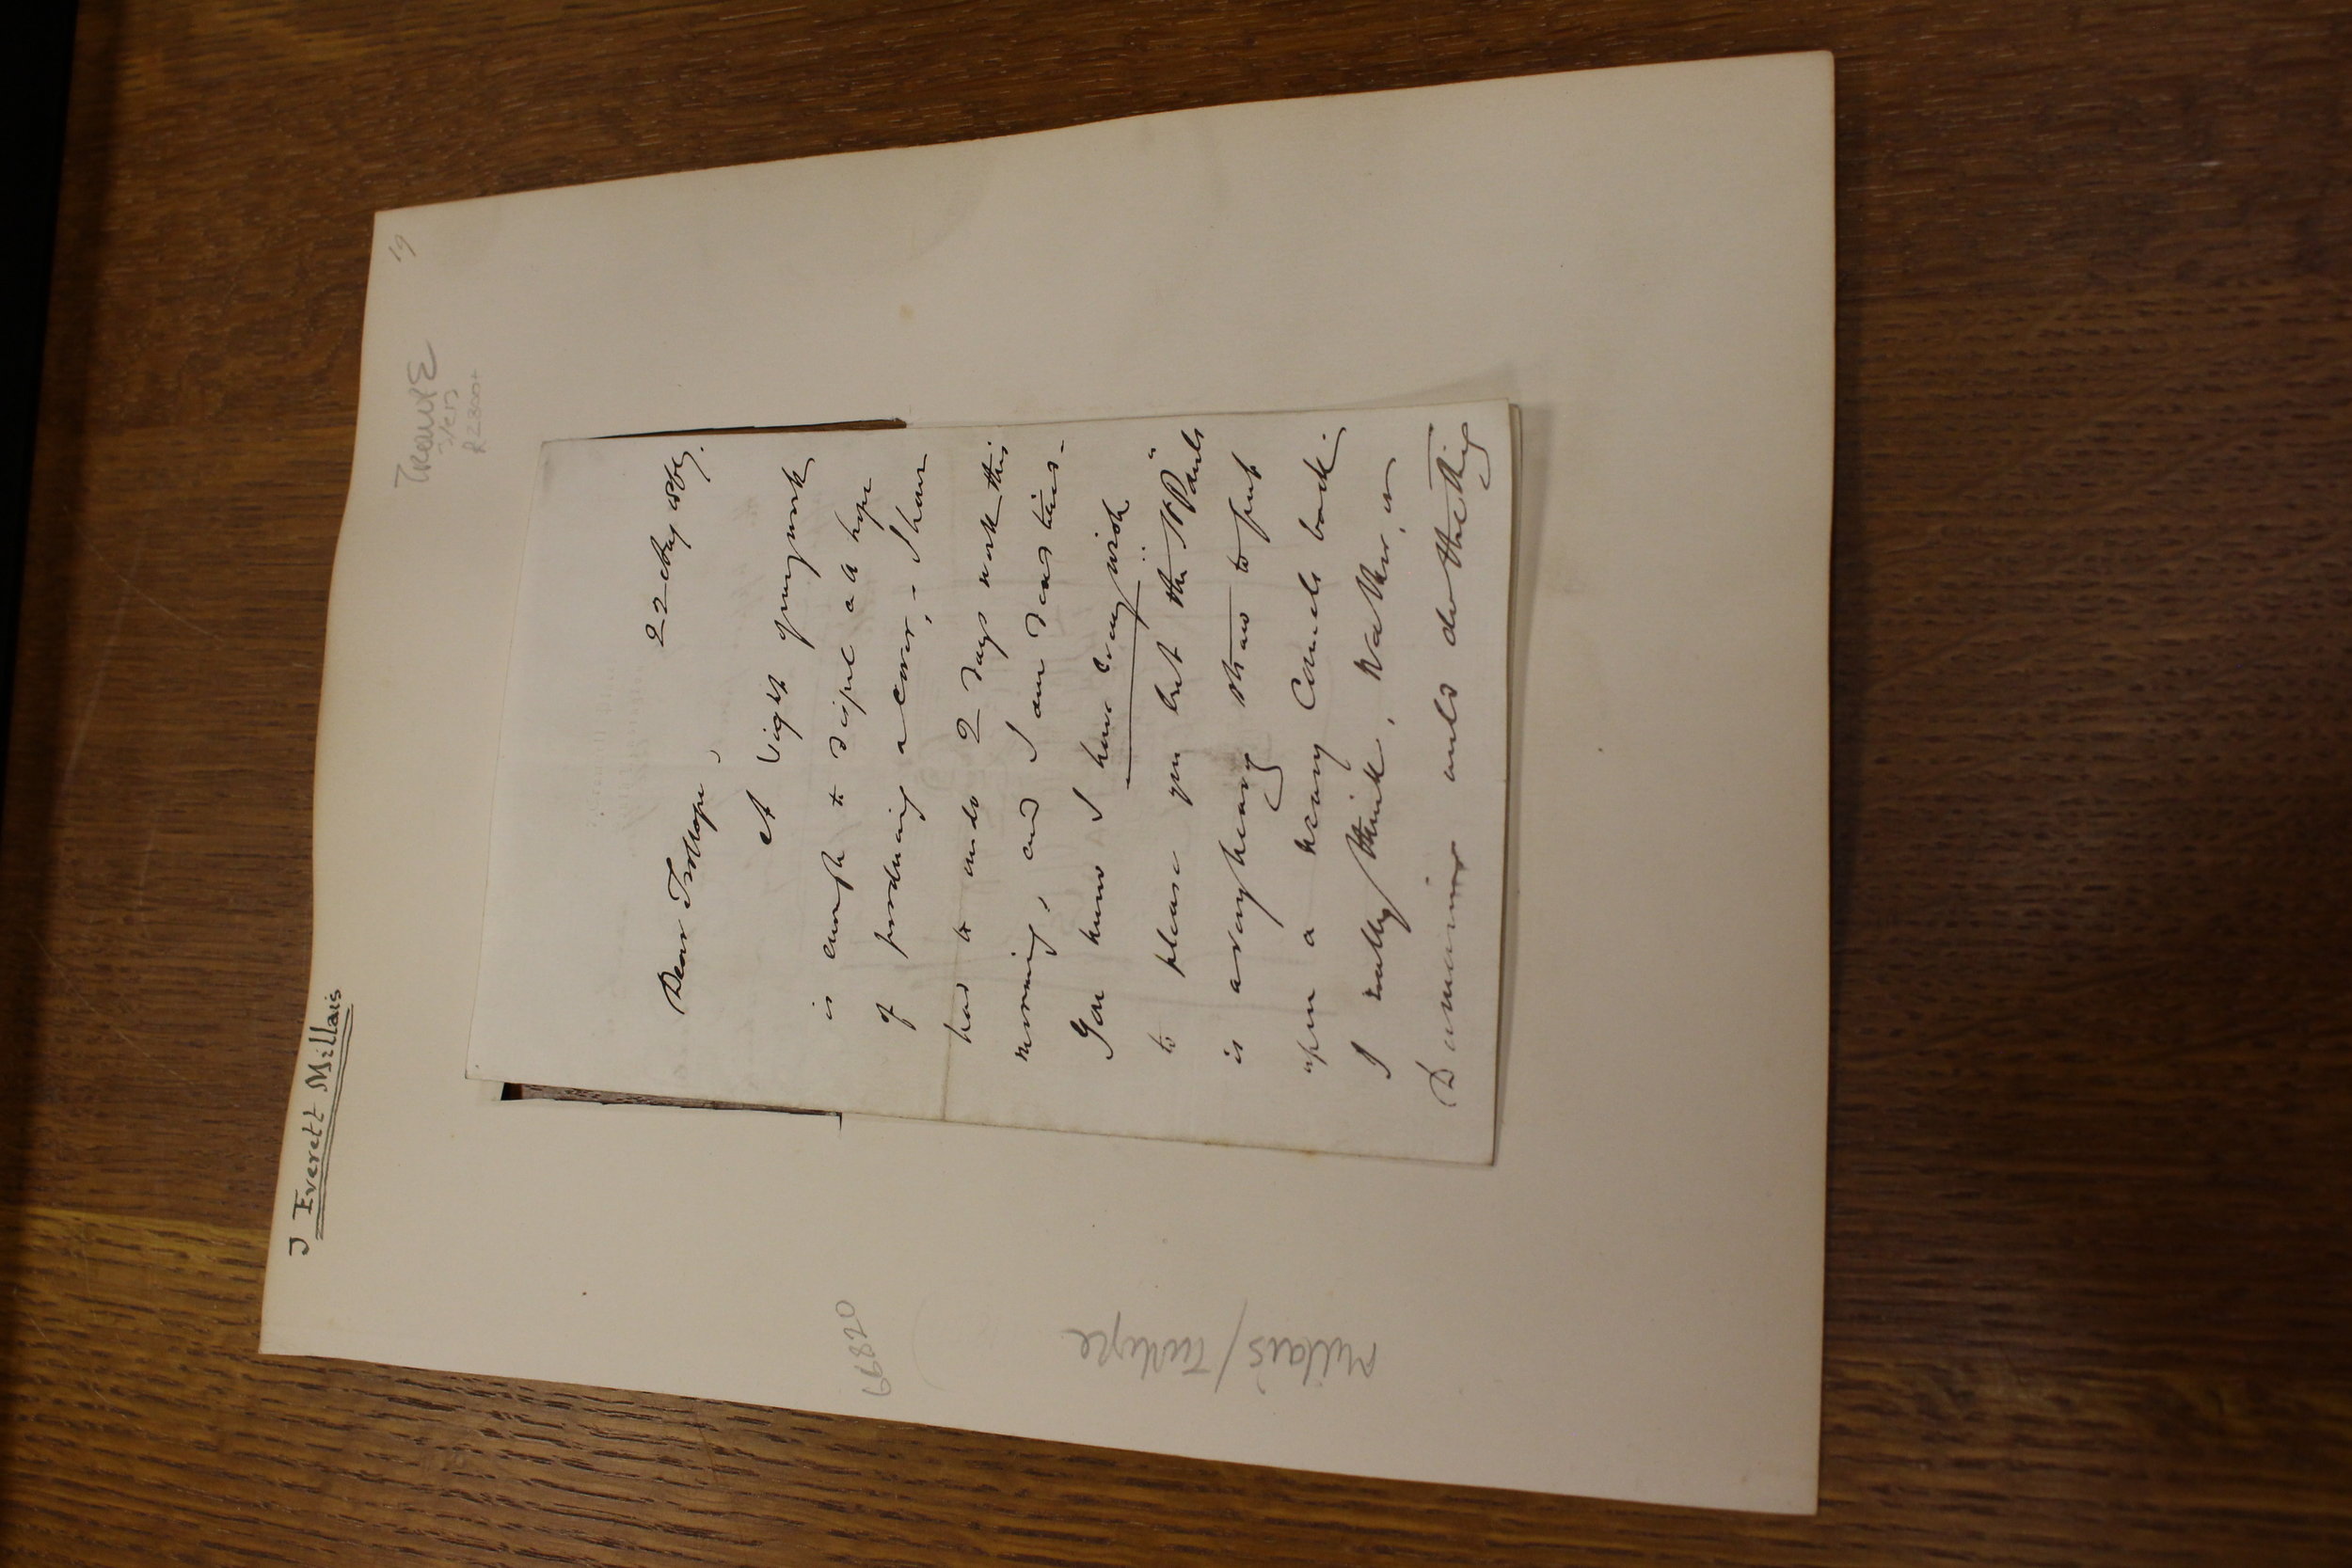 J Everett Millais
19
22 Aug 1867.
Dear Trollope,
A sight of my work
is enough to dispel all hope
of producing a cover, - I have
had to undo 2 days work this
morning, and I am dead tired -
You know I have every wish
to please you but the "St Pauls"
is a very heavy straw to put
upon a heavy Camels back.
I really think, Walker, or
Dumaurier could do the thing
66820
Millais/Trollope